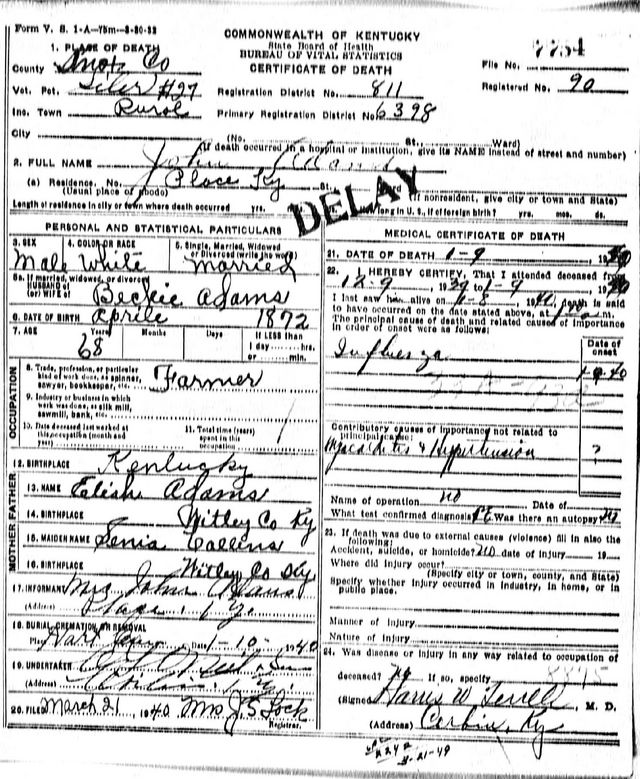 Form V. S. 1-A—75m—3-30-33
COMMONWEALTH OF KENTUCKY
State Board of Health
BUREAU OF VITAL STATISTICS
CERTIFICATE OF DEATH
File No. 7754
Registered No. 90
1. PLACE OF DEATH
County Knox Co
Vot. Pct. Siler #27
Registration District No. 811
Inc. Town Rural
Primary Registration District No. 6398
City (No. St., Ward)
(If death occurred in a hospital or institution, give its NAME instead of street and number)
2. FULL NAME John Adams
(a) Residence. No. Place Ky St., Ward
(Usual place of abode) (If nonresident, give city or town and State)
Length of residence in city or town where death occurred yrs. long in U. S., if of foreign birth? yrs. mos. ds.
DELAY
PERSONAL AND STATISTICAL PARTICULARS
3. SEX Male
4. COLOR OR RACE White
5. Single, Married, Widowed or Divorced (write the word) Married
5a. If married, widowed, or divorced
HUSBAND of
(or) WIFE of Beckie Adams
6. DATE OF BIRTH Aprile 1872
7. AGE Years 68 Months Days If LESS than 1 day hrs. or min.
OCCUPATION
8. Trade, profession, or particular kind of work done, as spinner, sawyer, bookkeeper, etc. Farmer
9. Industry or business in which work was done, as silk mill, sawmill, bank, etc.
10. Date deceased last worked at this occupation (month and year)
11. Total time (years) spent in this occupation
12. BIRTHPLACE Kentucky
MOTHER FATHER
13. NAME Elish Adams
14. BIRTHPLACE Witley Co Ky
15. MAIDEN NAME Senia Collins
16. BIRTHPLACE Witley Co Ky
17. INFORMANT Mrs John Adams
(Address)
18. BURIAL CREMATION OR REMOVAL
Place Hart Date 1-10-1940
19. UNDERTAKER
(Address)
20. FILED March 21, 1940 Mrs J S Lock
Registrar.
MEDICAL CERTIFICATE OF DEATH
21. DATE OF DEATH 1-9, 1940
22. I HEREBY CERTIFY, That I attended deceased from
12-9, 1939 to 1-9, 1940
I last saw h alive on 1-8, 1940, death is said
to have occurred on the date stated above, at m.
The principal cause of death and related causes of importance
in order of onset were as follows:
Date of onset
Influenza
Contributory causes of importance not related to
principal cause:
Myocarditis & Hypertension ?
Name of operation no Date of
What test confirmed diagnosis? PE Was there an autopsy? no
23. If death was due to external causes (violence) fill in also the
following:
Accident, suicide, or homicide? no date of injury 19
Where did injury occur?
(Specify city or town, county, and State)
Specify whether injury occurred in industry, in home, or in
public place.
Manner of injury
Nature of injury
24. Was disease or injury in any way related to occupation of
deceased? no If so, specify 8875
(Signed) Harris W Terrell, M. D.
(Address) Corbin, Ky